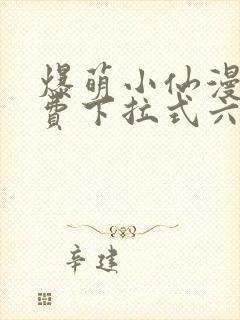 爆萌小仙漫
费下拉式六
辛建